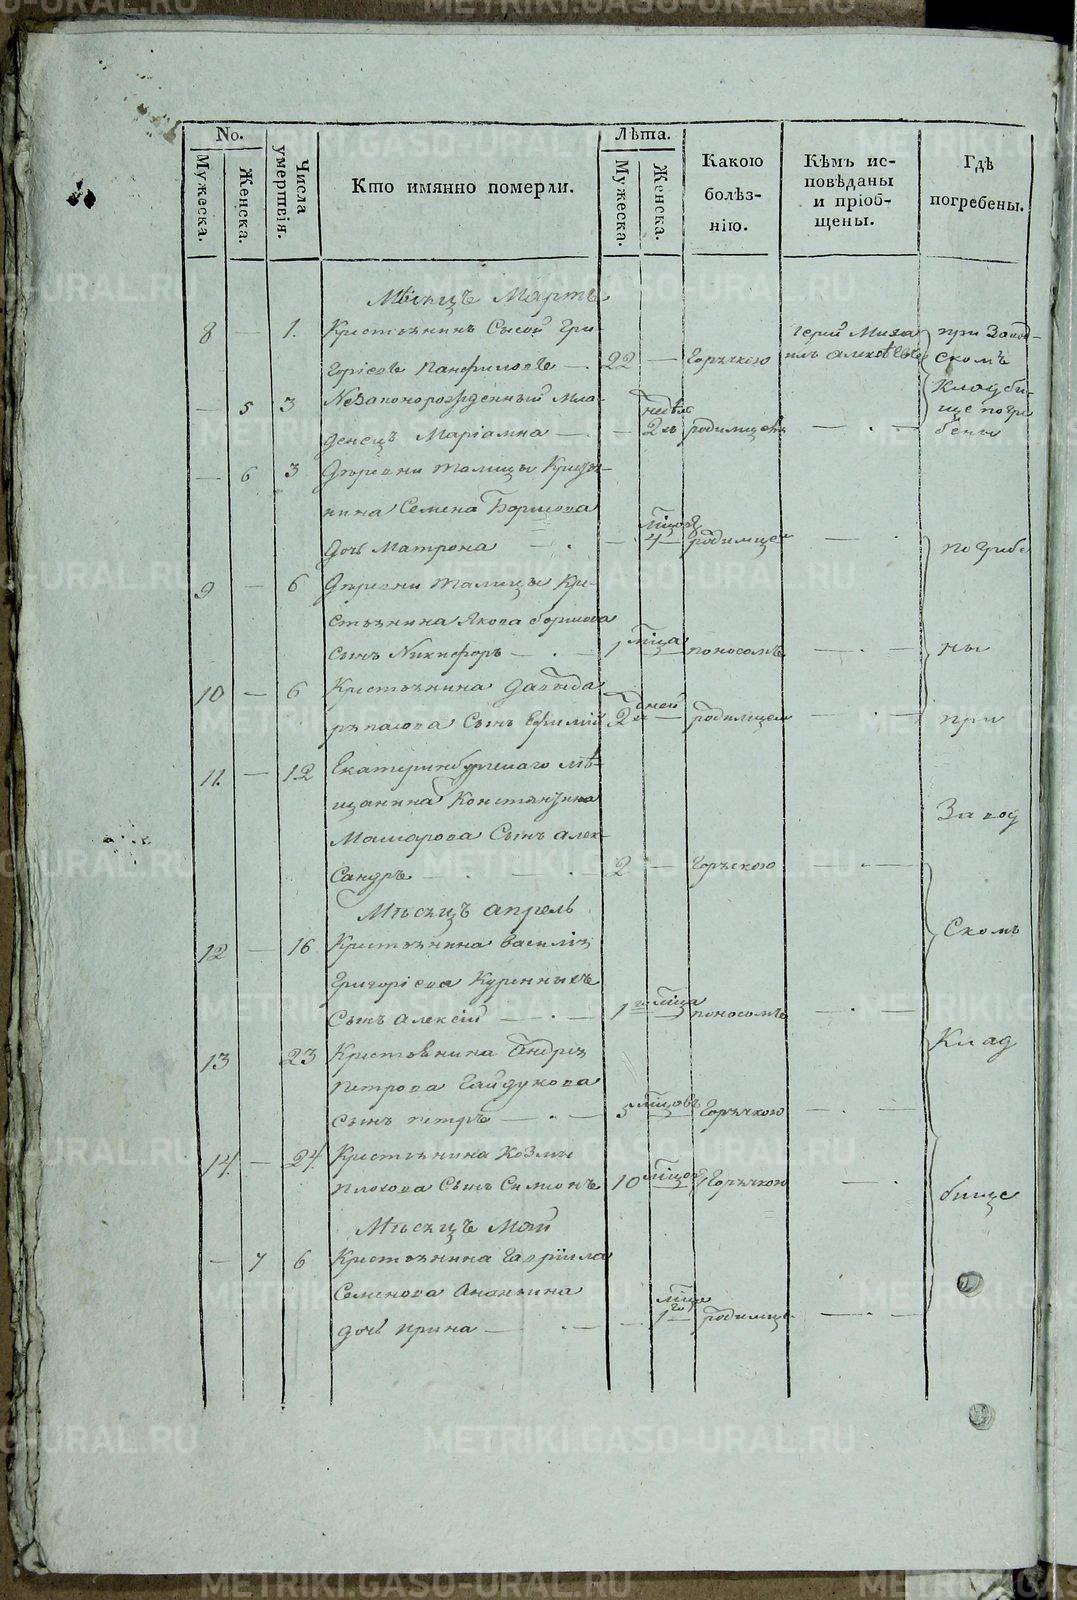 No.
Мужеска.
Женска.
Числа умерпсія.
Кто имянно померли.
Лѣта.
Мужеска.
Женска.
Какою болѣз-нію.
Кѣмъ ис-повѣданы и пріоб-щены.
Гдѣ погребены.
Мѣсяцъ Мартъ
8 — 1. Крестьянинъ Сысой Гри-
горіевъ Панфиловъ — 22 — Горячкою
Іерей Миха
илъ
при Завод-
скомъ
кладби-
ще погре
бены
— 5 3 Незаконорожденный мла-
денецъ Маріамна — — 2 родимцемъ — . —
— 6 3 Деревни Талицы Крестья-
нина Семена Борисова
дочь Матрона — . — 4 родимцем — .
9 — 6 Деревни Талицы Кре-
стьянина Якова Борисова
сынъ Никифоръ — . — 1 мца поносомъ — . —
10 — 6 Крестьянина Давыда
сынъ Ефимій 2 дней — родимцем — . —
11. — 12 Екатеринбургскаго мѣ-
щанина Константина
сынъ Алек-
сандръ — . — . 2 — Горячкою — . —
Мѣсяцъ Апрель
12 — 16 Крестьянина Василія
Григоріева Куренныхъ
сынъ Алексій — . — 1 мца поносомъ — . —
13 23 Крестьянина Андрея
Петрова Гайдукова
сынъ Петръ — . — 5 мцовъ Горячкою — . —
14. — 24. Крестьянина Козмы
Плохова сынъ Симионъ 10 мцовъ Горячкою — .
Мѣсяцъ Май
— 7 6 Крестьянина Гавріила
Семенова Ананьина
дочь Ирина — . — — 1 родимце — . —
погребе
ны
при
Завод
скомъ
клад
бище
METRIKI.GASO-URAL.RU